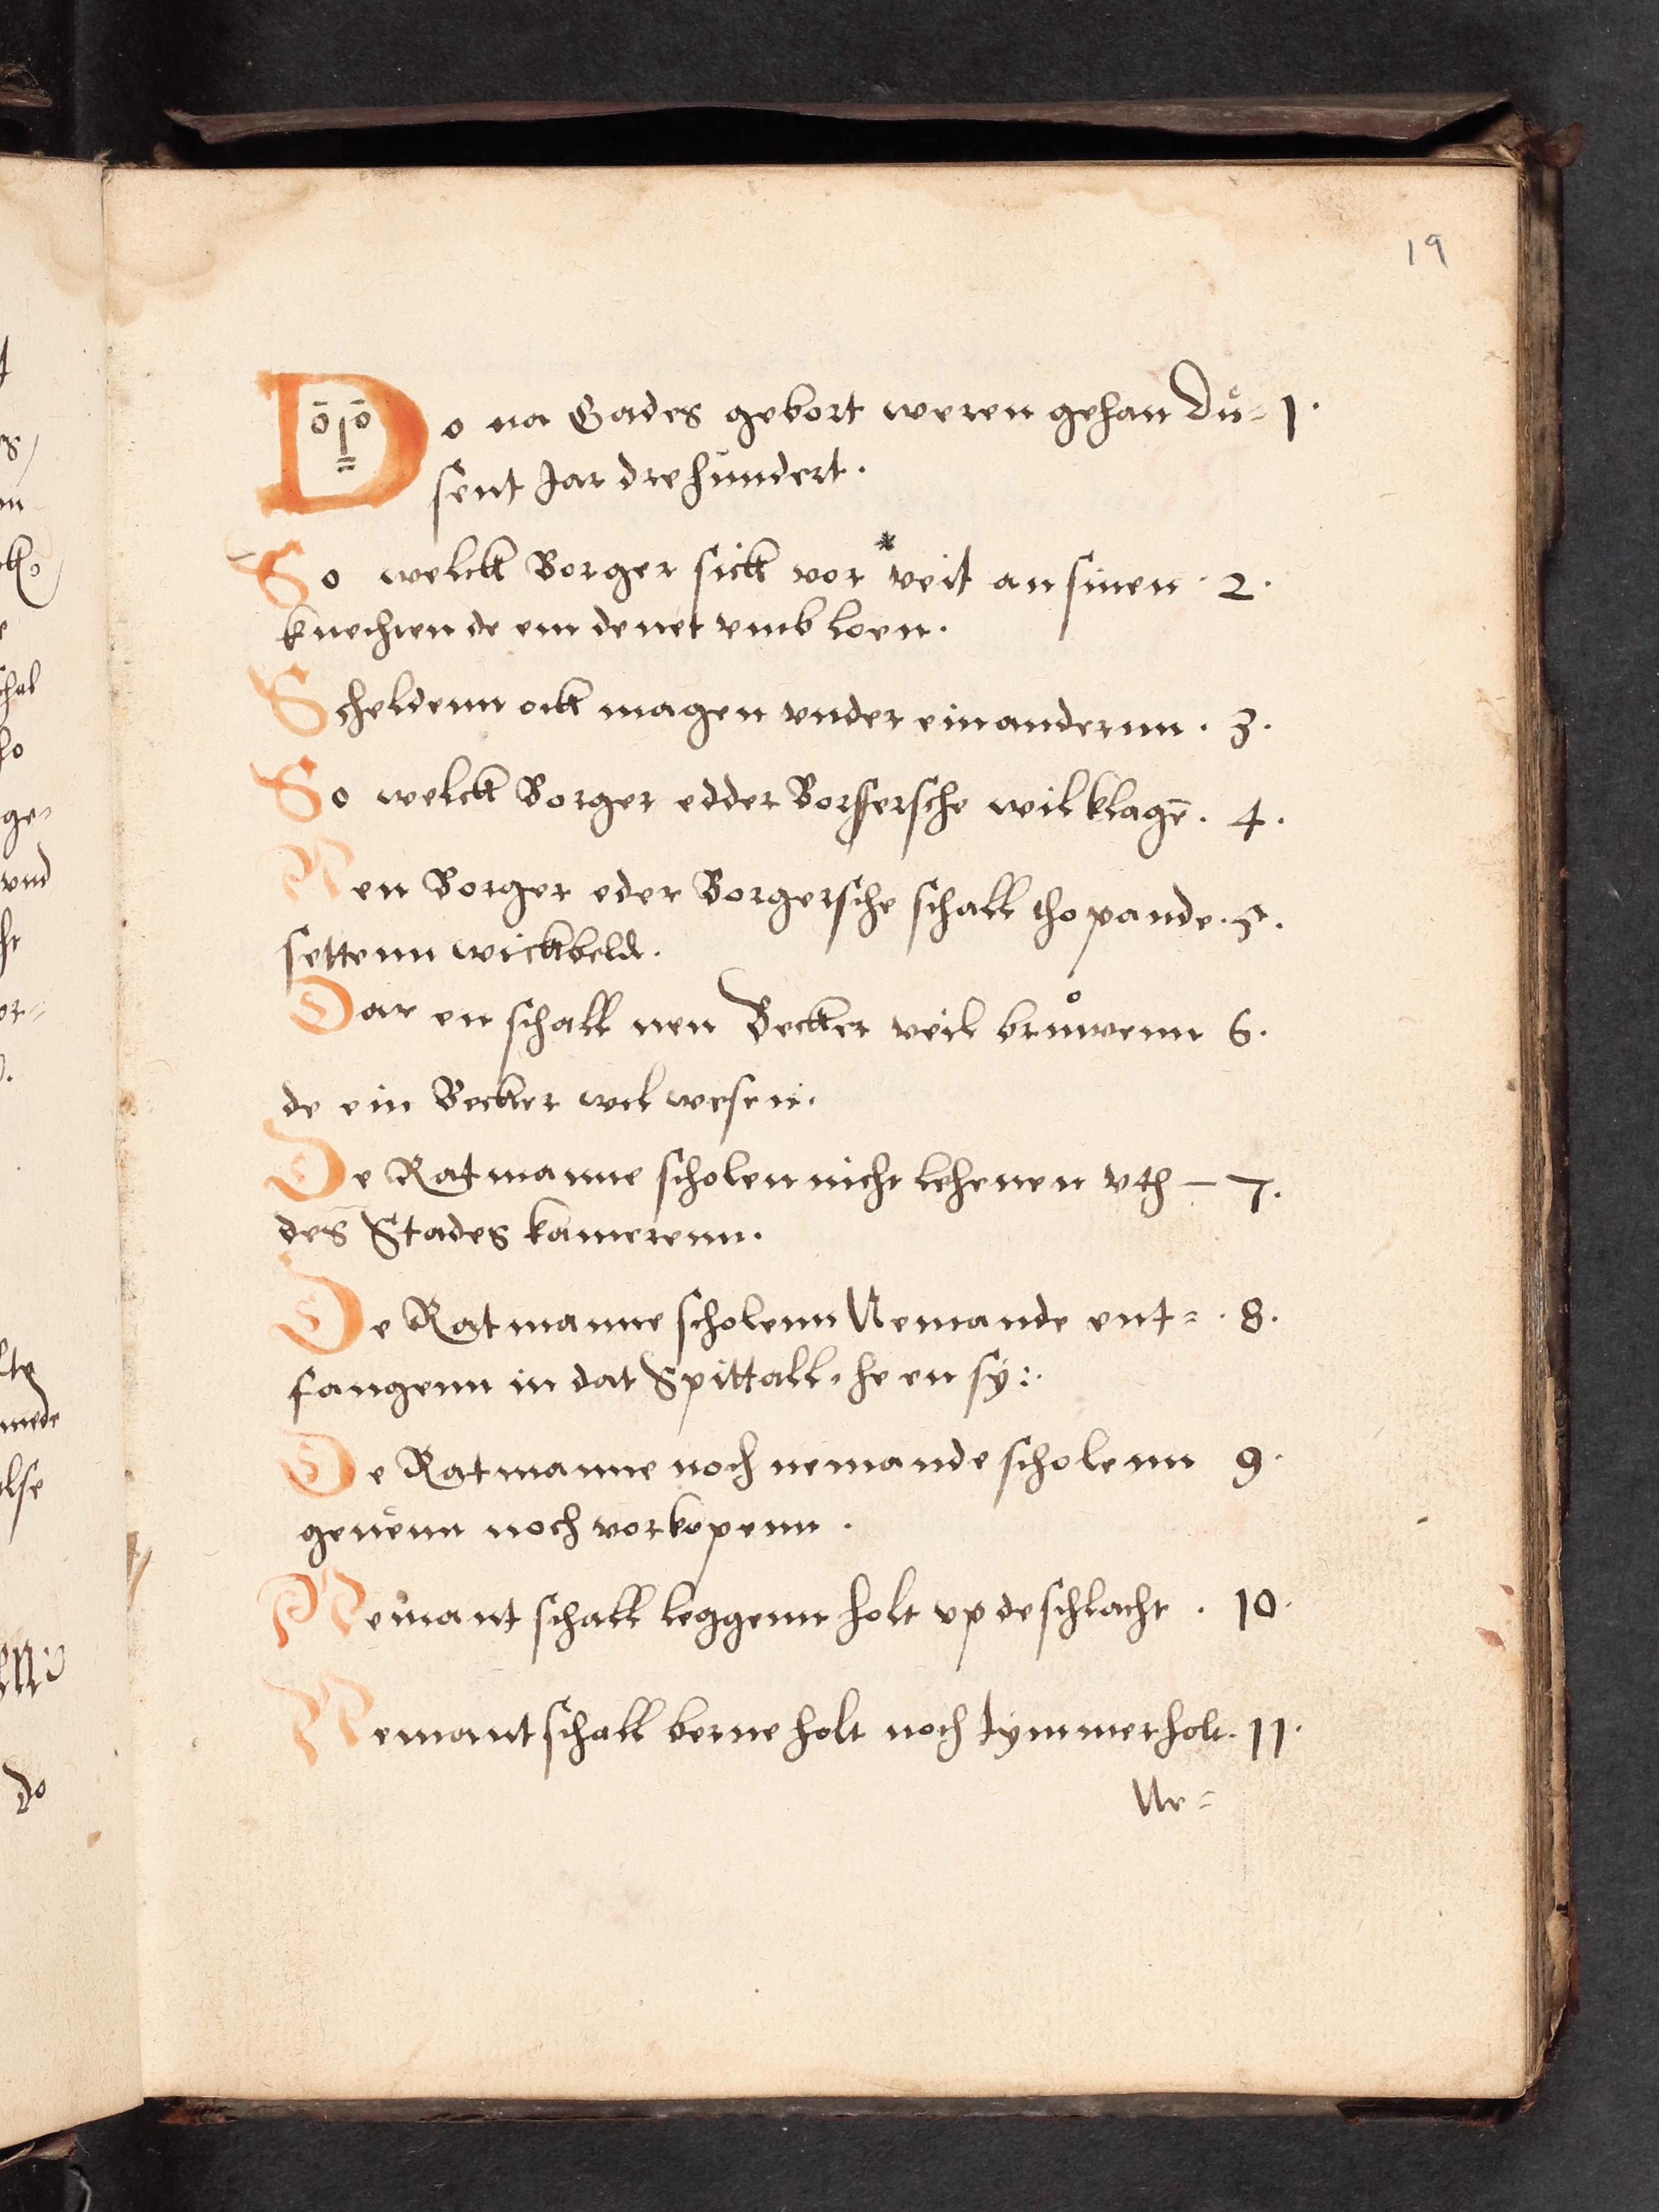 19
Do na Gades gebort weren gehan Du= 1.
sent Jar drehundert.
So welck Borger sick vor veit an sinen . 2.
knechten de em denet vmb loen.
Scheldenn ock magen vnder ein andernn . 3.
So welck Borger edder Borgersche wil klagē . 4.
Nen Borger eder Borgersche schall tho pande . 5.
settenn wickbelde.
Dar en schall nen Becker veil bruwenn 6.
de ein Becker wil wesen.
De Ratmanne scholen nicht lehenen vth – 7.
des Stades kamerenn.
De Ratmanne scholenn Nemande ent= . 8.
fangenn in dat Spittall, he en sÿ:.
De Ratmanne noch nemande scholenn 9.
geuenn noch vorkopenn .
Nemant schall leggenn holt vp de schlacht . 10.
Nemant schall berneholt noch tymmerholt . 11.
Ne=